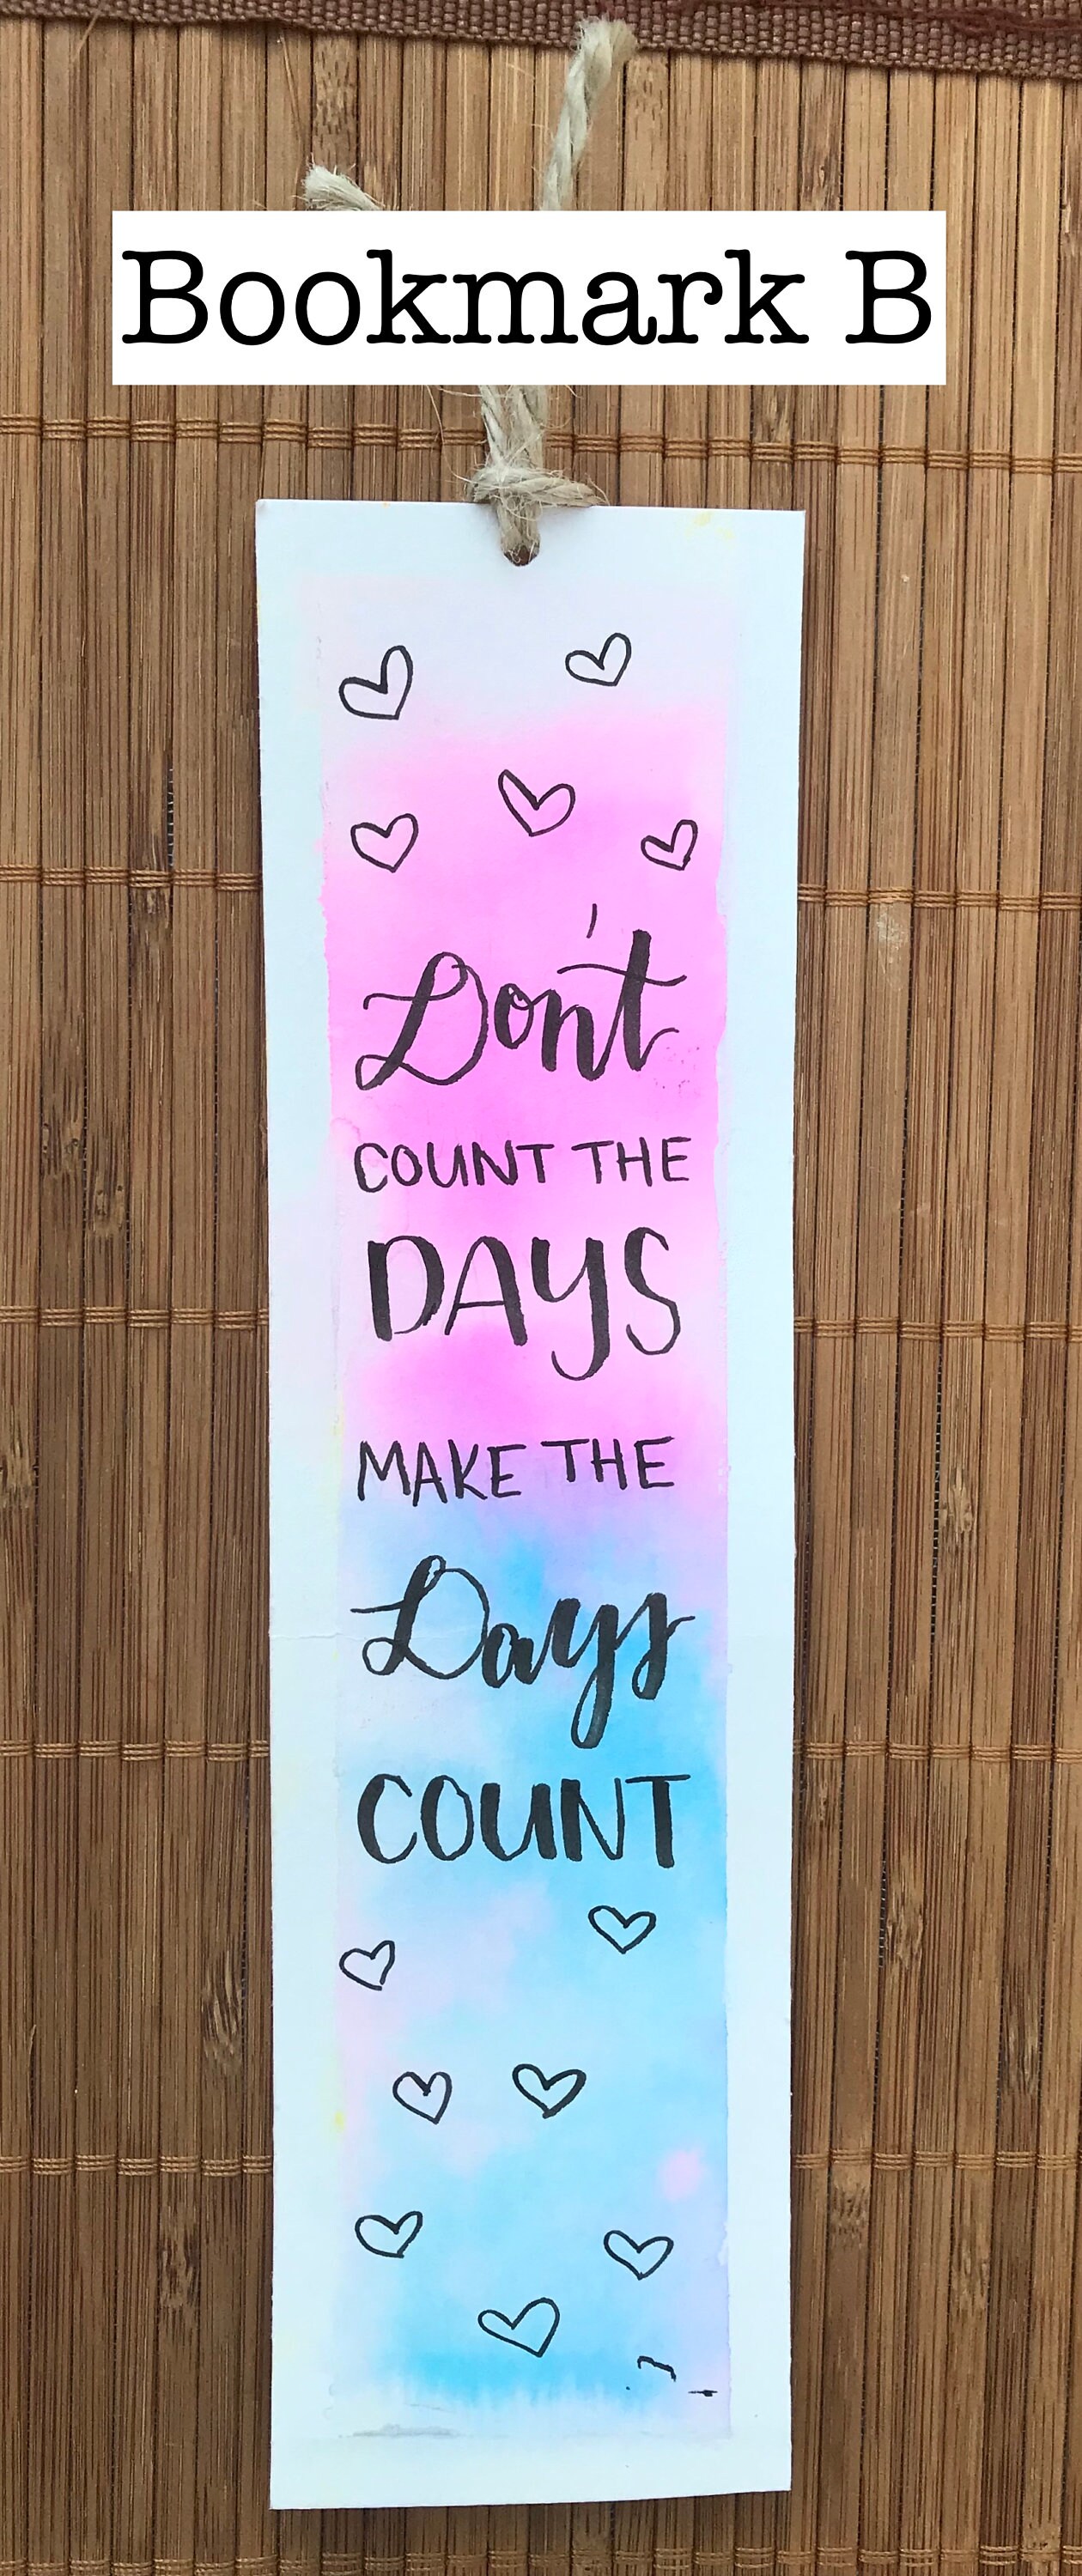 Bookmark B
Don't
COUNT THE
DAYS
MAKE THE
Days
COUNT